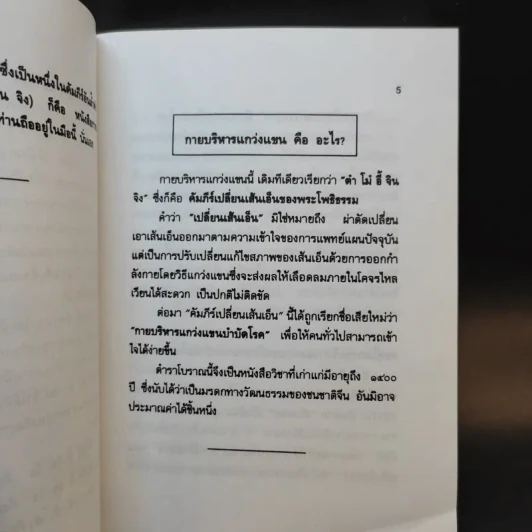 ซึ่งเป็นหนึ่งในคัมภีร์อันล้ำ
น จิง) ก็คือ หนังสือ
ท่านถืออยู่ในมือนี้ นั่นเอง
5
กายบริหารแกว่งแขน คือ อะไร?
กายบริหารแกว่งแขนนี้ เดิมทีเดียวเรียกว่า "ตำ โม๋ อี้ จิน
จิง" ซึ่งก็คือ คัมภีร์เปลี่ยนเส้นเอ็นของพระโพธิธรรม
คำว่า "เปลี่ยนเส้นเอ็น" มิใช่หมายถึง ผ่าตัดเปลี่ยน
เอาเส้นเอ็นออกมาตามความเข้าใจของการแพทย์แผนปัจจุบัน
แต่เป็นการปรับเปลี่ยนแก้ไขสภาพของเส้นเอ็นด้วยการออกกำ
ลังกายโดยวิธีแกว่งแขนซึ่งจะส่งผลให้เลือดลมภายในโคจรไหล
เวียนได้สะดวก เป็นปกติไม่ติดขัด
ต่อมา "คัมภีร์เปลี่ยนเส้นเอ็น" นี้ได้ถูกเรียกชื่อเสียใหม่ว่า
"กายบริหารแกว่งแขนบำบัดโรค" เพื่อให้คนทั่วไปสามารถเข้า
ใจได้ง่ายขึ้น
ตำราโบราณนี้จึงเป็นหนังสือวิชาที่เก่าแก่มีอายุถึง ๑๔๐๐
ปี ซึ่งนับได้ว่าเป็นมรดกทางวัฒนธรรมของชนชาติจีน อันมิอาจ
ประมาณค่าได้ชิ้นหนึ่ง